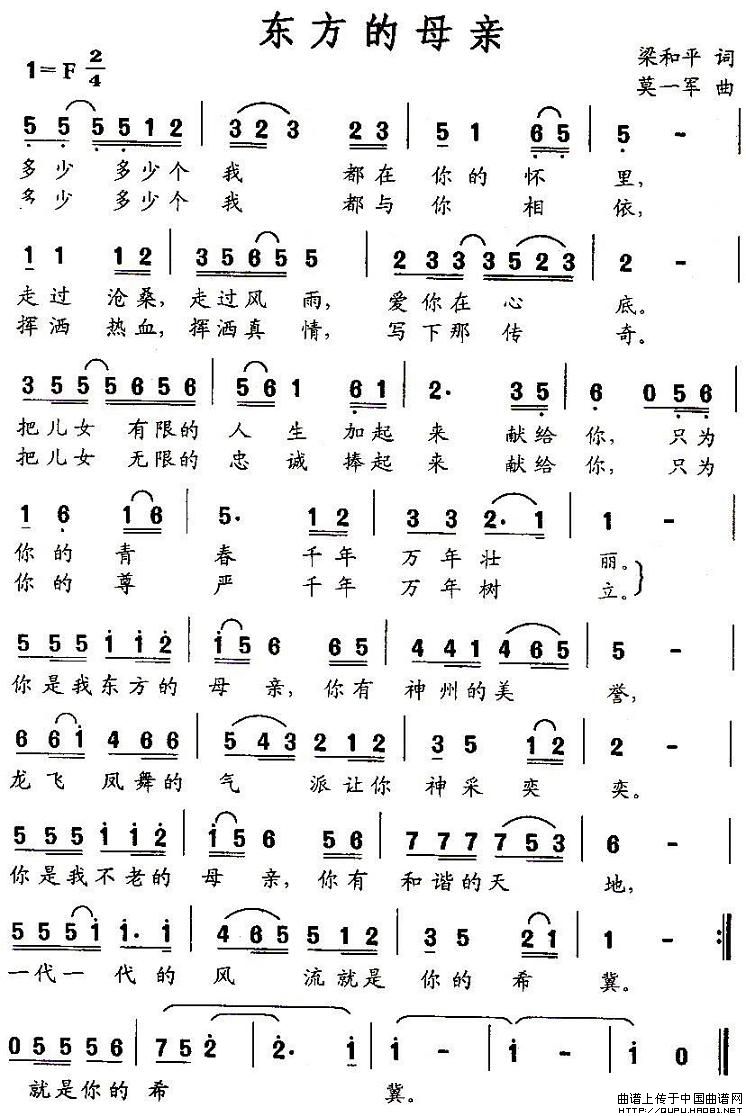 东方的母亲
1=F 2/4
梁和平 词
莫一军 曲
5 5 5 5 1 2 | 3 2 3 2 3 | 5 1 6 5 | 5 - |
多少 多少个 我 都在 你的 怀 里,
多少 多少个 我 都与 你 相 依,
1 1 1 2 | 3 5 6 5 5 | 2 3 3 3 5 2 3 | 2 - |
走过 沧桑, 走过风 雨, 爱你在 心 底。
挥洒 热血, 挥洒真 情, 写下那 传 奇。
3 5 5 5 6 5 6 | 5 6 1 6 1 | 2· 3 5 | 6 0 5 6 |
把儿女 有限的 人 生 加起 来 献给 你, 只为
把儿女 无限的 忠 诚 捧起 来 献给 你, 只为
1 6 1 6 | 5· 1 2 | 3 3 2· 1 | 1 - |
你的 青 春 千年 万年壮 丽。
你的 尊 严 千年 万年树 立。
5 5 5 1 1 2 | 1 5 6 6 5 | 4 4 1 4 6 5 | 5 - |
你是我东方的 母 亲, 你有 神州的美 誉,
6 6 1 4 6 6 | 5 4 3 2 1 2 | 3 5 1 2 | 2 - |
龙飞 凤舞的 气 派让你 神采 奕 奕。
5 5 5 1 1 2 | 1 5 6 5 6 | 7 7 7 7 5 3 | 6 - |
你是我不老的 母 亲, 你有 和谐的天 地,
5 5 5 1 1· 1 | 4 6 5 5 1 2 | 3 5 2 1 | 1 - :‖
一代一 代的 风 流就是 你的 希 冀。
0 5 5 5 6 | 7 5 2 | 2· 1 | 1 - | 1 - | 1 0 ‖
就是你的 希 冀。
曲谱上传于中国曲谱网
HTTP://QUPU.HAO81.NET